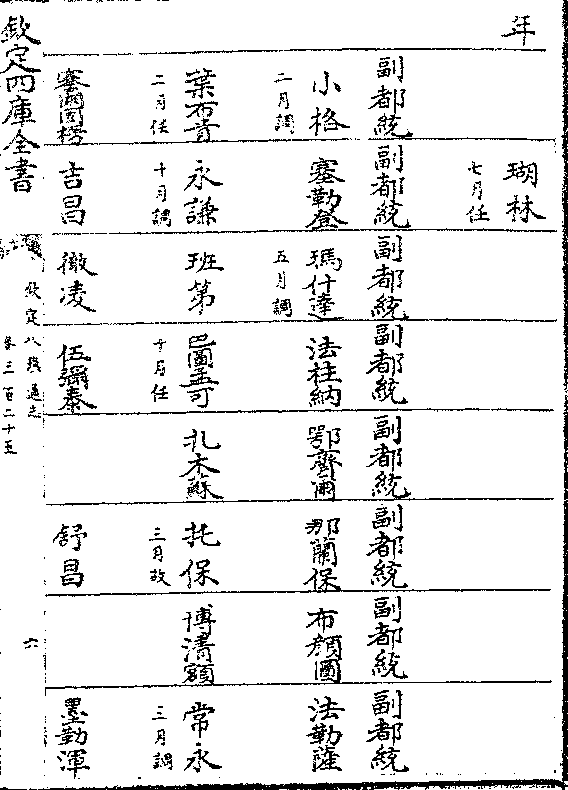 年
瑚林
七月任
副都統
副都統
副都統
副都統
副都統
副都統
副都統
副都統
小格
二月調
塞勒登
瑪什達
五月調
法柱納
鄂齊爾
那蘭保
布顔圖
法勒薩
葉布肯
二月任
永謙
十月調
班第
巴圖孟可
十月任
扎木蘇
托保
三月故
博清額
常永
三月調
塞爾圖楞
吉昌
徹凌
伍彌泰
舒昌
墨勒渾
欽定四庫全書
欽定八旗通志
卷三百二十五
六